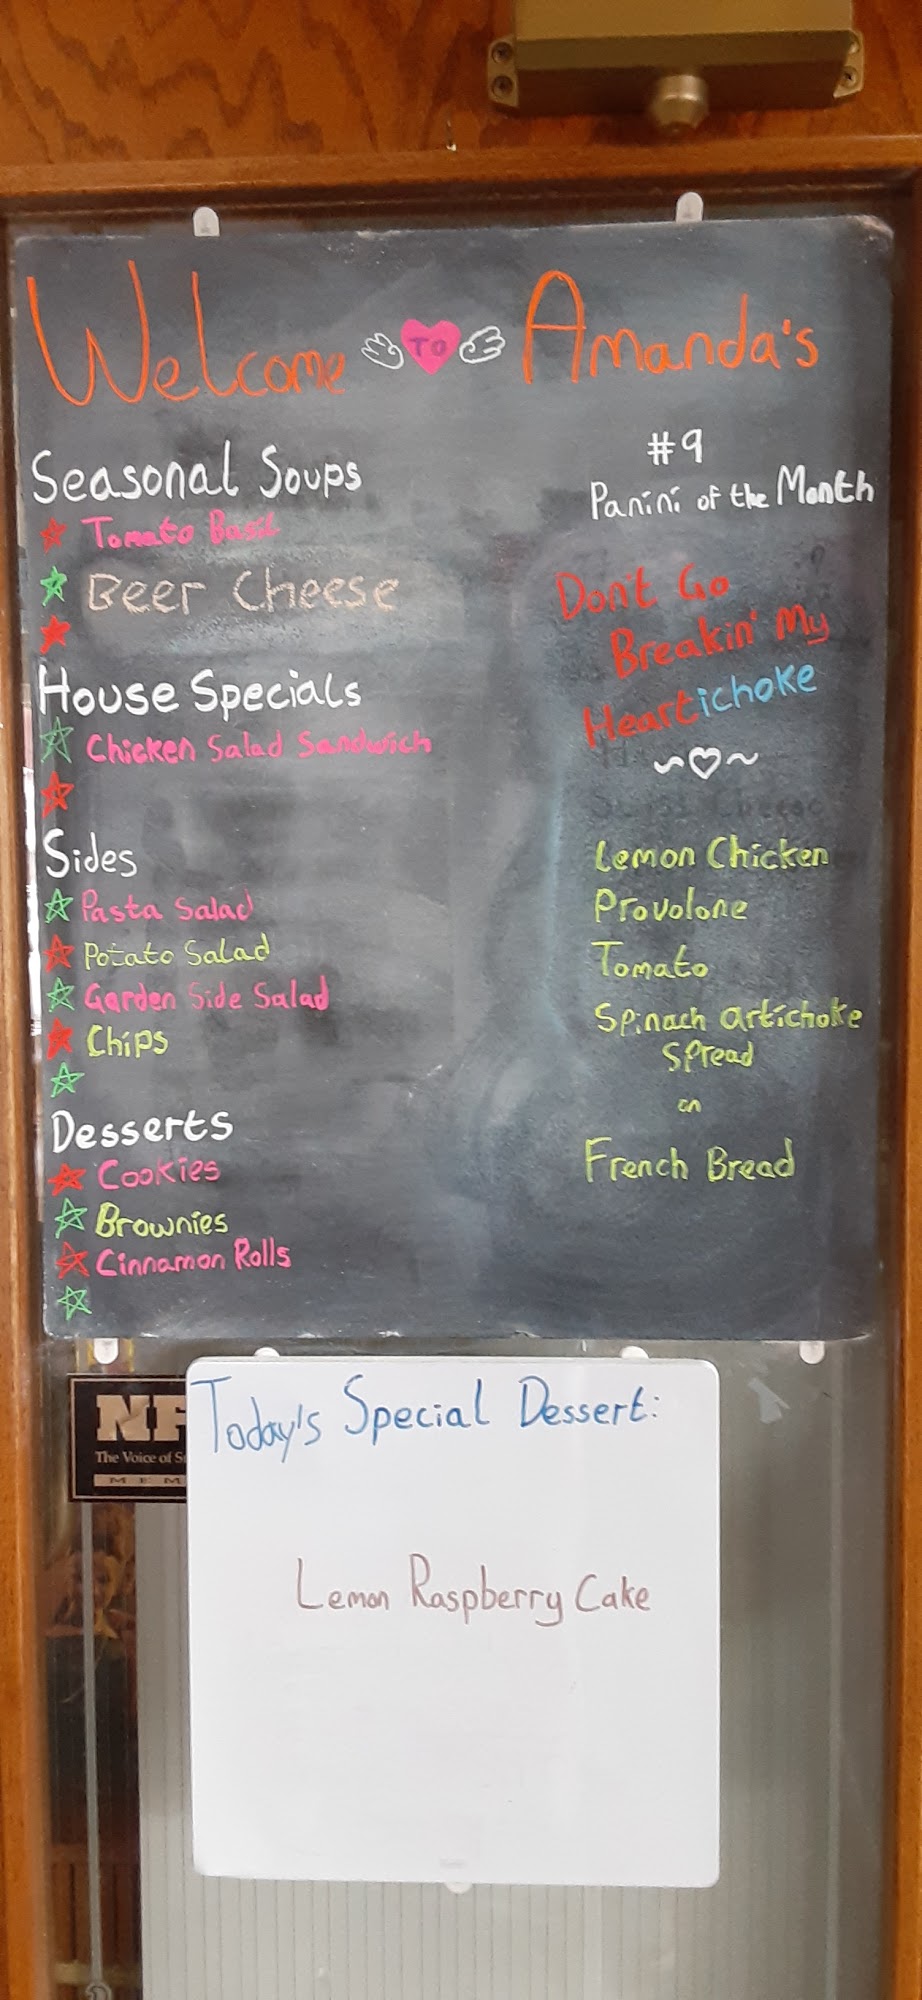 Welcome TO Amanda's
Seasonal Soups
Tomato Basil
Beer Cheese
House Specials
Chicken Salad Sandwich
Sides
Pasta Salad
Potato Salad
Garden Side Salad
Chips
Desserts
Cookies
Brownies
Cinnamon Rolls
#9
Panini of the Month
Don't Go
Breakin' My
Heartichoke
Lemon Chicken
Provolone
Tomato
Spinach Artichoke
Spread
on
French Bread
NF
The Voice of
Today's Special Dessert:
Lemon Raspberry Cake